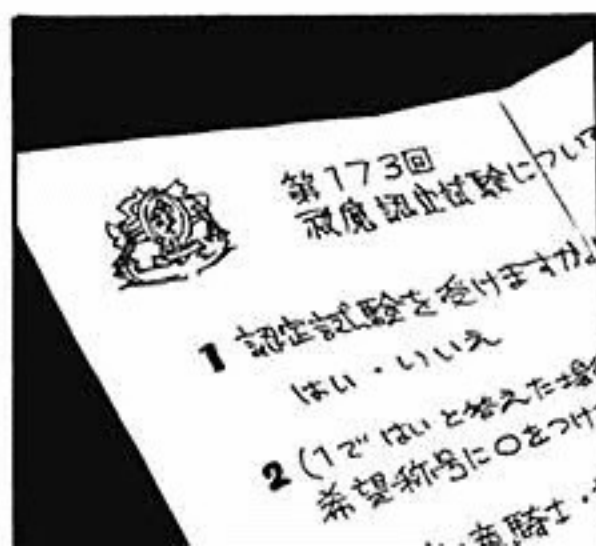 第173回
認定試験について
1 認定試験を受けますか。
はい・いいえ
2 (1で はいと答えた場合
希望称号に○をつけ
竜騎士・